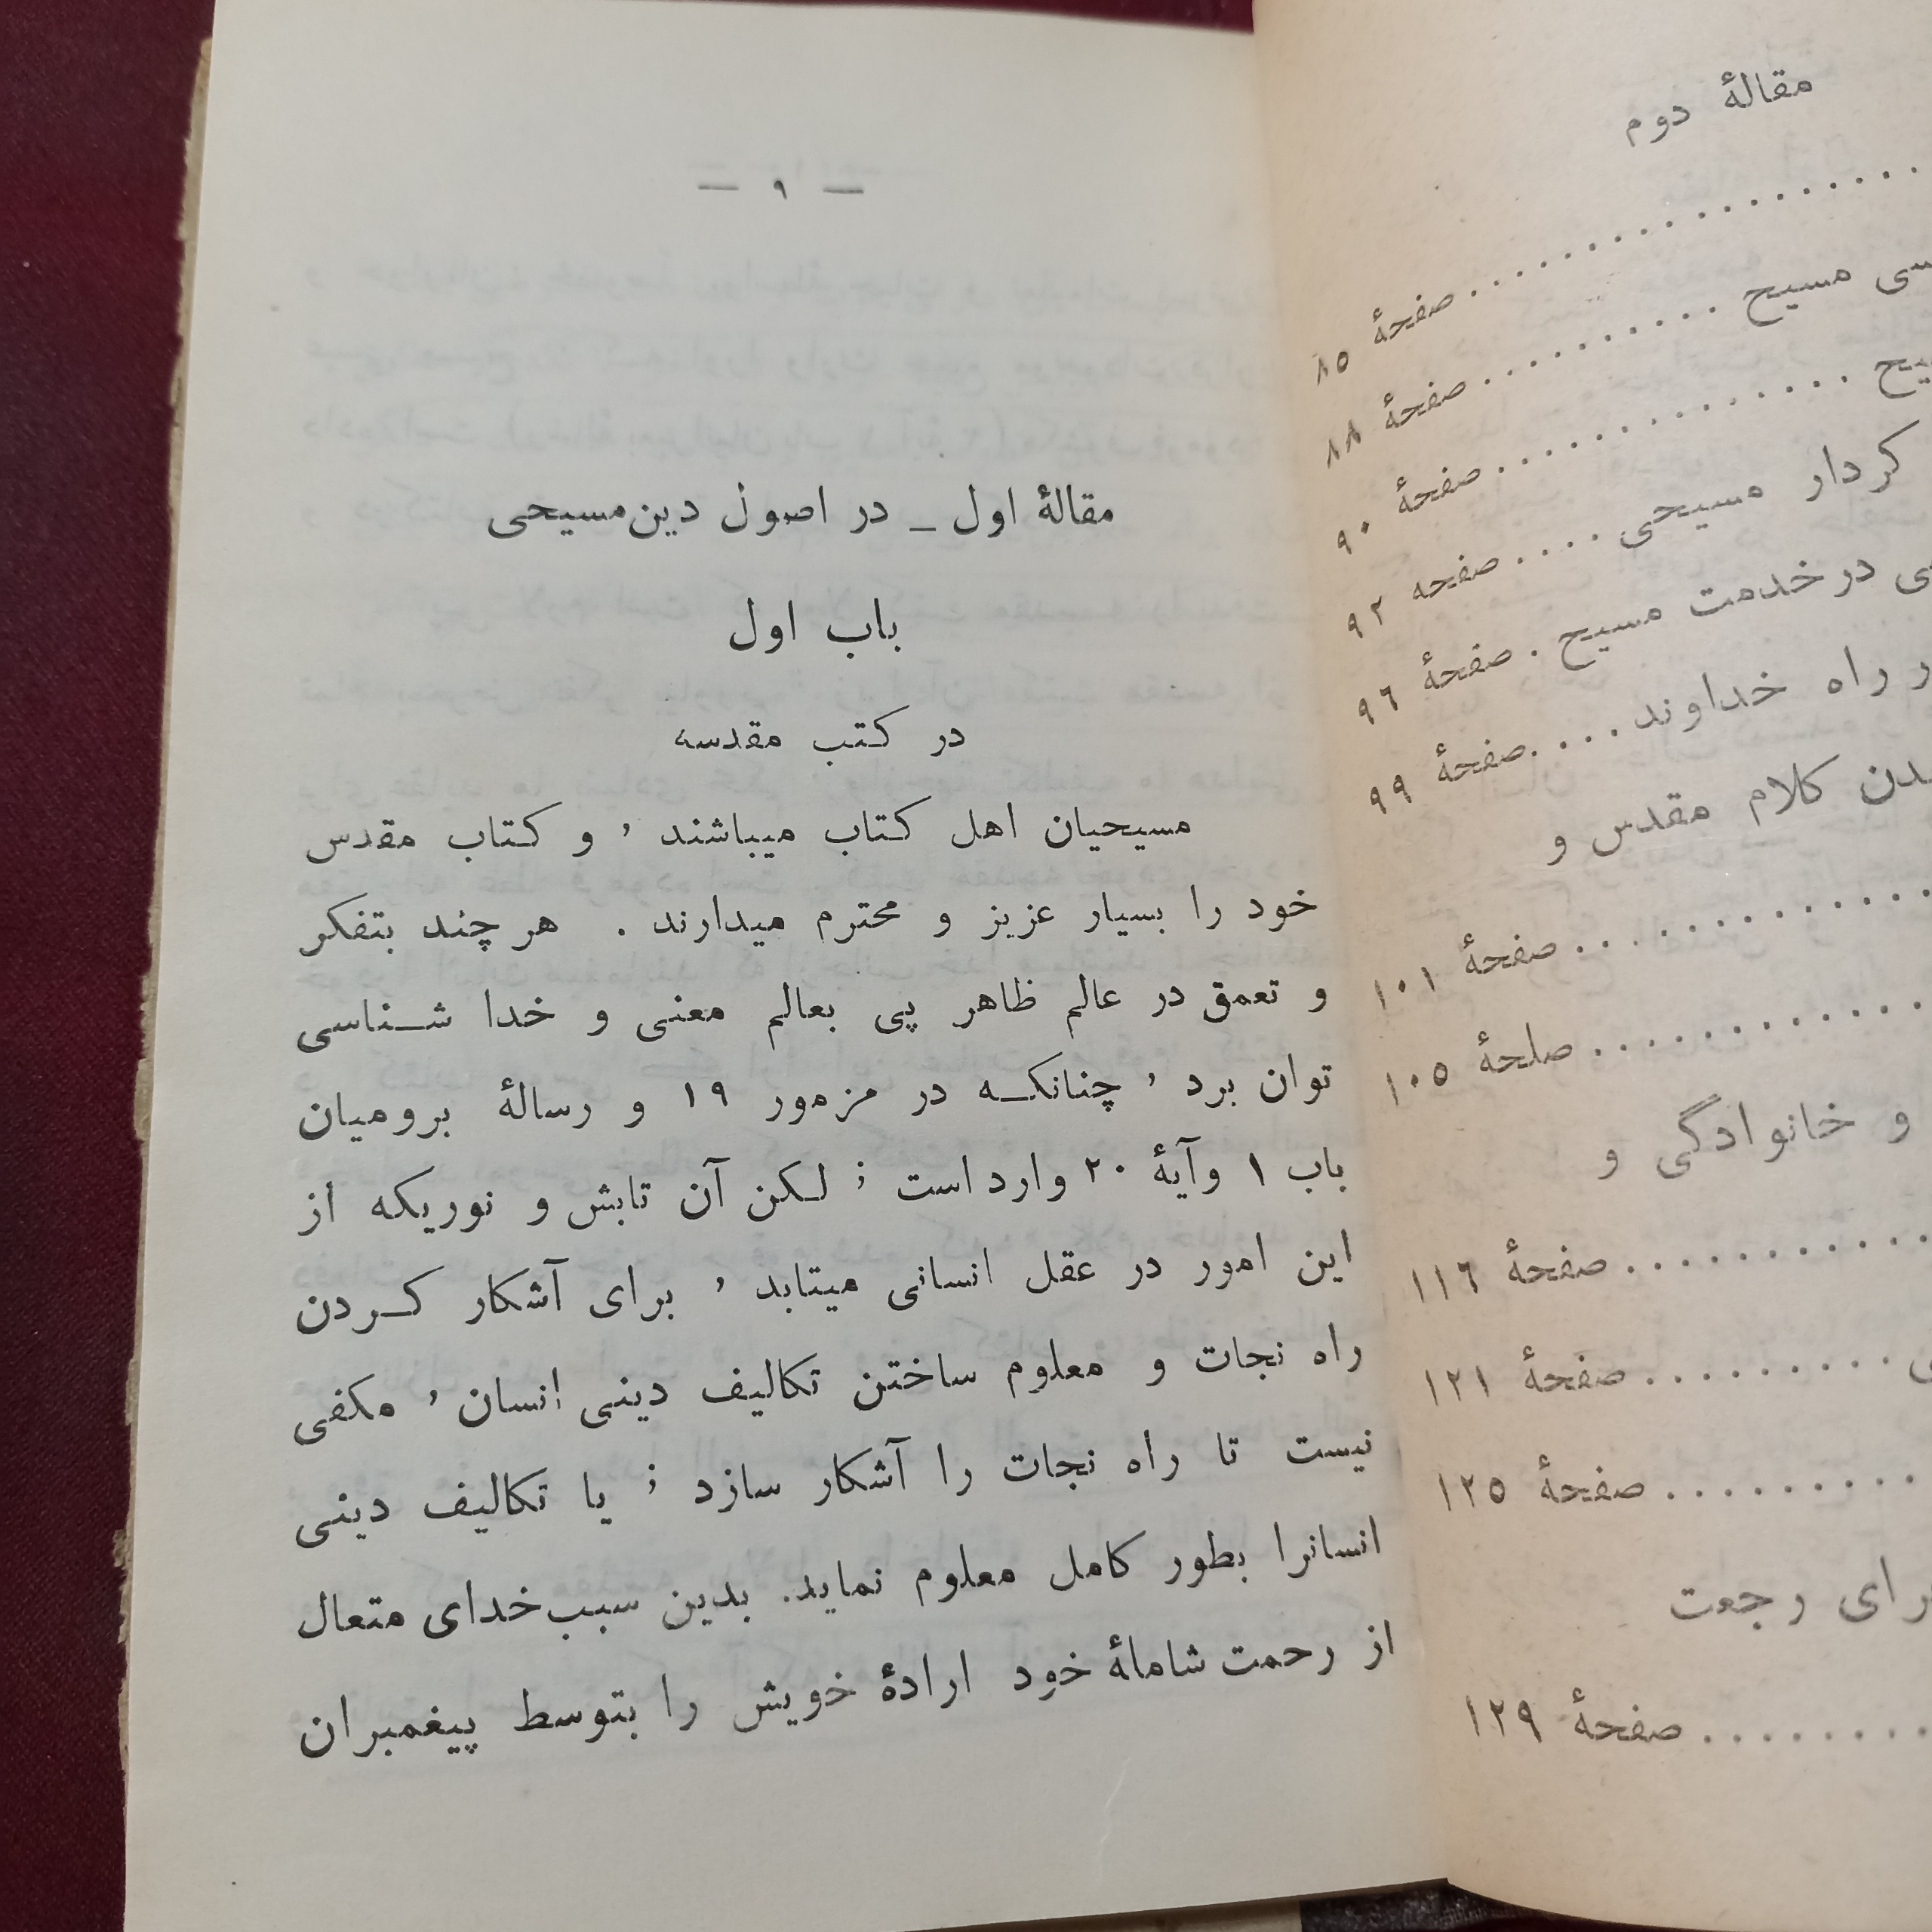 مقالهٔ دوم
صفحهٔ ۸۵
سی مسیح .......... صفحهٔ ۸۸
............... صفحهٔ ۹۰
کردار مسیحی .... صفحه ۹۲
در خدمت مسیح . صفحهٔ ۹۶
راه خداوند .... صفحهٔ ۹۹
کلام مقدس و
صفحهٔ ۱۰۱
صلحهٔ ۱۰۵
و خانوادگی و
صفحهٔ ۱۱۶
صفحهٔ ۱۲۱
صفحهٔ ۱۲۵
رجعت
صفحهٔ ۱۲۹
— ۹ —
مقالهٔ اول _ در اصول دین مسیحی
باب اول
در کتب مقدسه
مسیحیان اهل کتاب میباشند , و کتاب مقدس
خود را بسیار عزیز و محترم میدارند . هر چند بتفکر
و تعمق در عالم ظاهر پی بعالم معنی و خدا شــناسی
توان برد , چنانکــه در مزمور ۱۹ و رسالهٔ برومیان
باب ۱ وآیهٔ ۲۰ وارد است ; لـکن آن تابش و نوریکه از
این امور در عقل انسانی میتابد , برای آشکار کــردن
راه نجات و معلوم ساختن تکالیف دینی انسان , مکفی
نیست تا راه نجات را آشکار سازد ; یا تکالیف دینی
انسانرا بطور کامل معلوم نماید. بدین سبب خدای متعال
از رحمت شاملهٔ خود ارادهٔ خویش را بتوسط پیغمبران